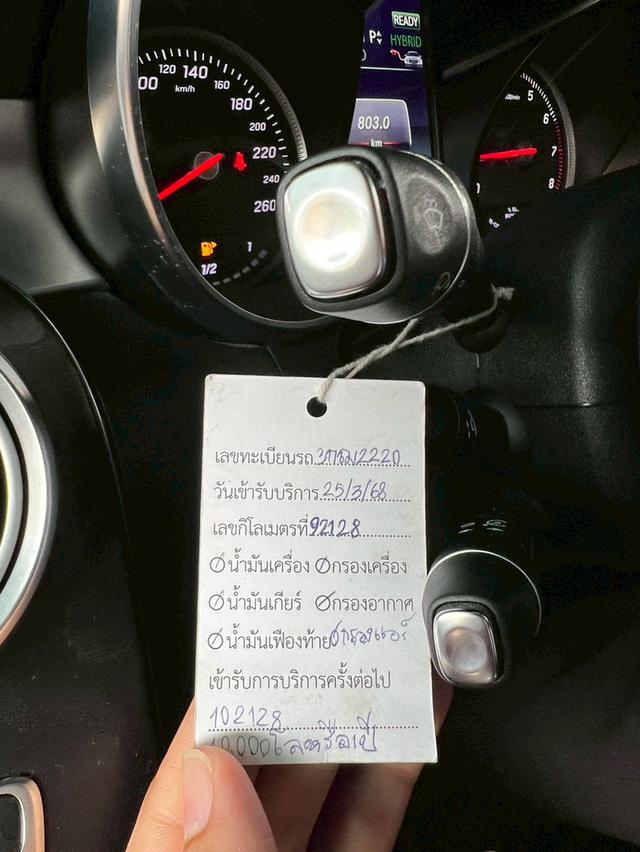 READY
HYBRID
P
00 120 140 160 180 200 220 240 260
km/h
803.0
km
1/2 1
5 6 7 8
1
เลขทะเบียนรถ 2220
วันเข้ารับบริการ 25/3/68
เลขกิโลเมตรที่ 92128
น้ำมันเครื่อง กรองเครื่อง
น้ำมันเกียร์ กรองอากาศ
น้ำมันเฟืองท้าย กรองแอร์
เข้ารับการบริการครั้งต่อไป
102128
10,000โลหรือ1ปี